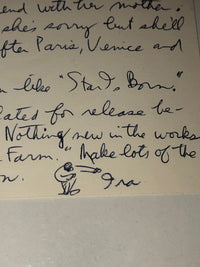 end with her mother.
she's sorry but she'll
fter Paris, Venice and
like "Star Is Born."
ated for release be-
Nothing new in the works
Farm." Make lots of the
n.
Ira